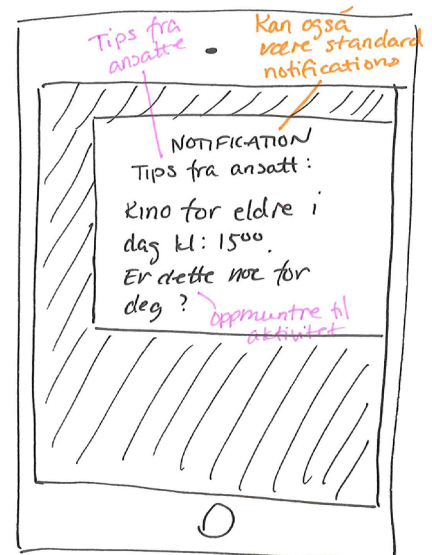 Tips fra
ansatte
Kan også
være standard
notifications
NOTIFICATION
Tips fra ansatt:
Kino for eldre i
dag kl: 15⁰⁰.
Er dette noe for
deg?
oppmuntre til
aktivitet